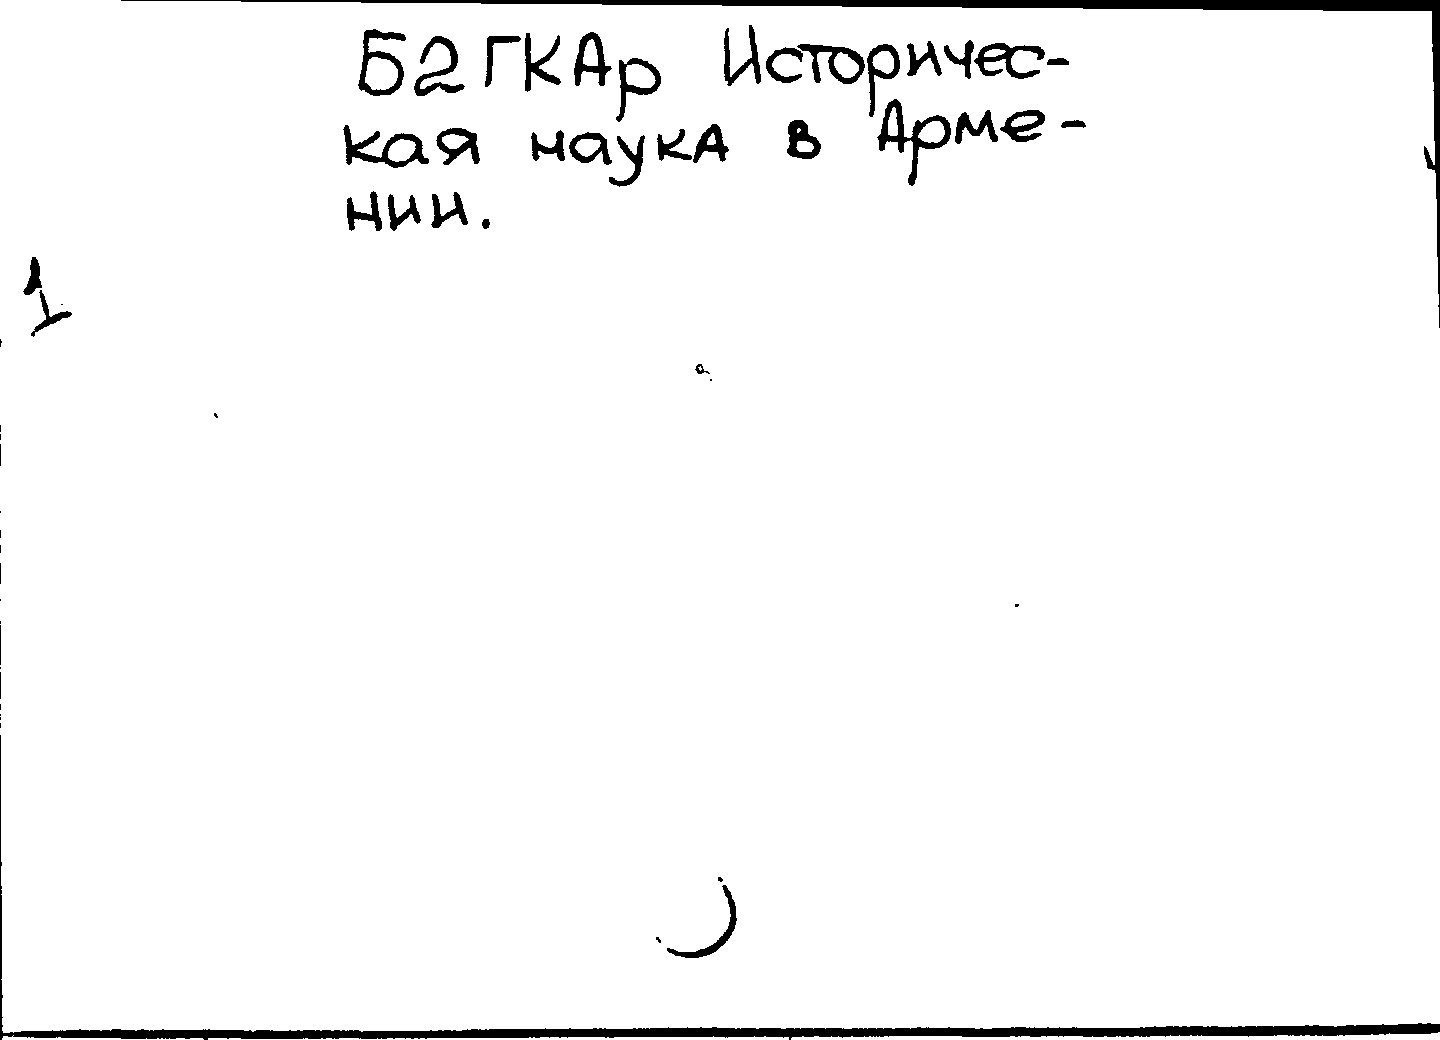 Б2ГКАр Историчес-
кая наука в Арме-
нии.
1